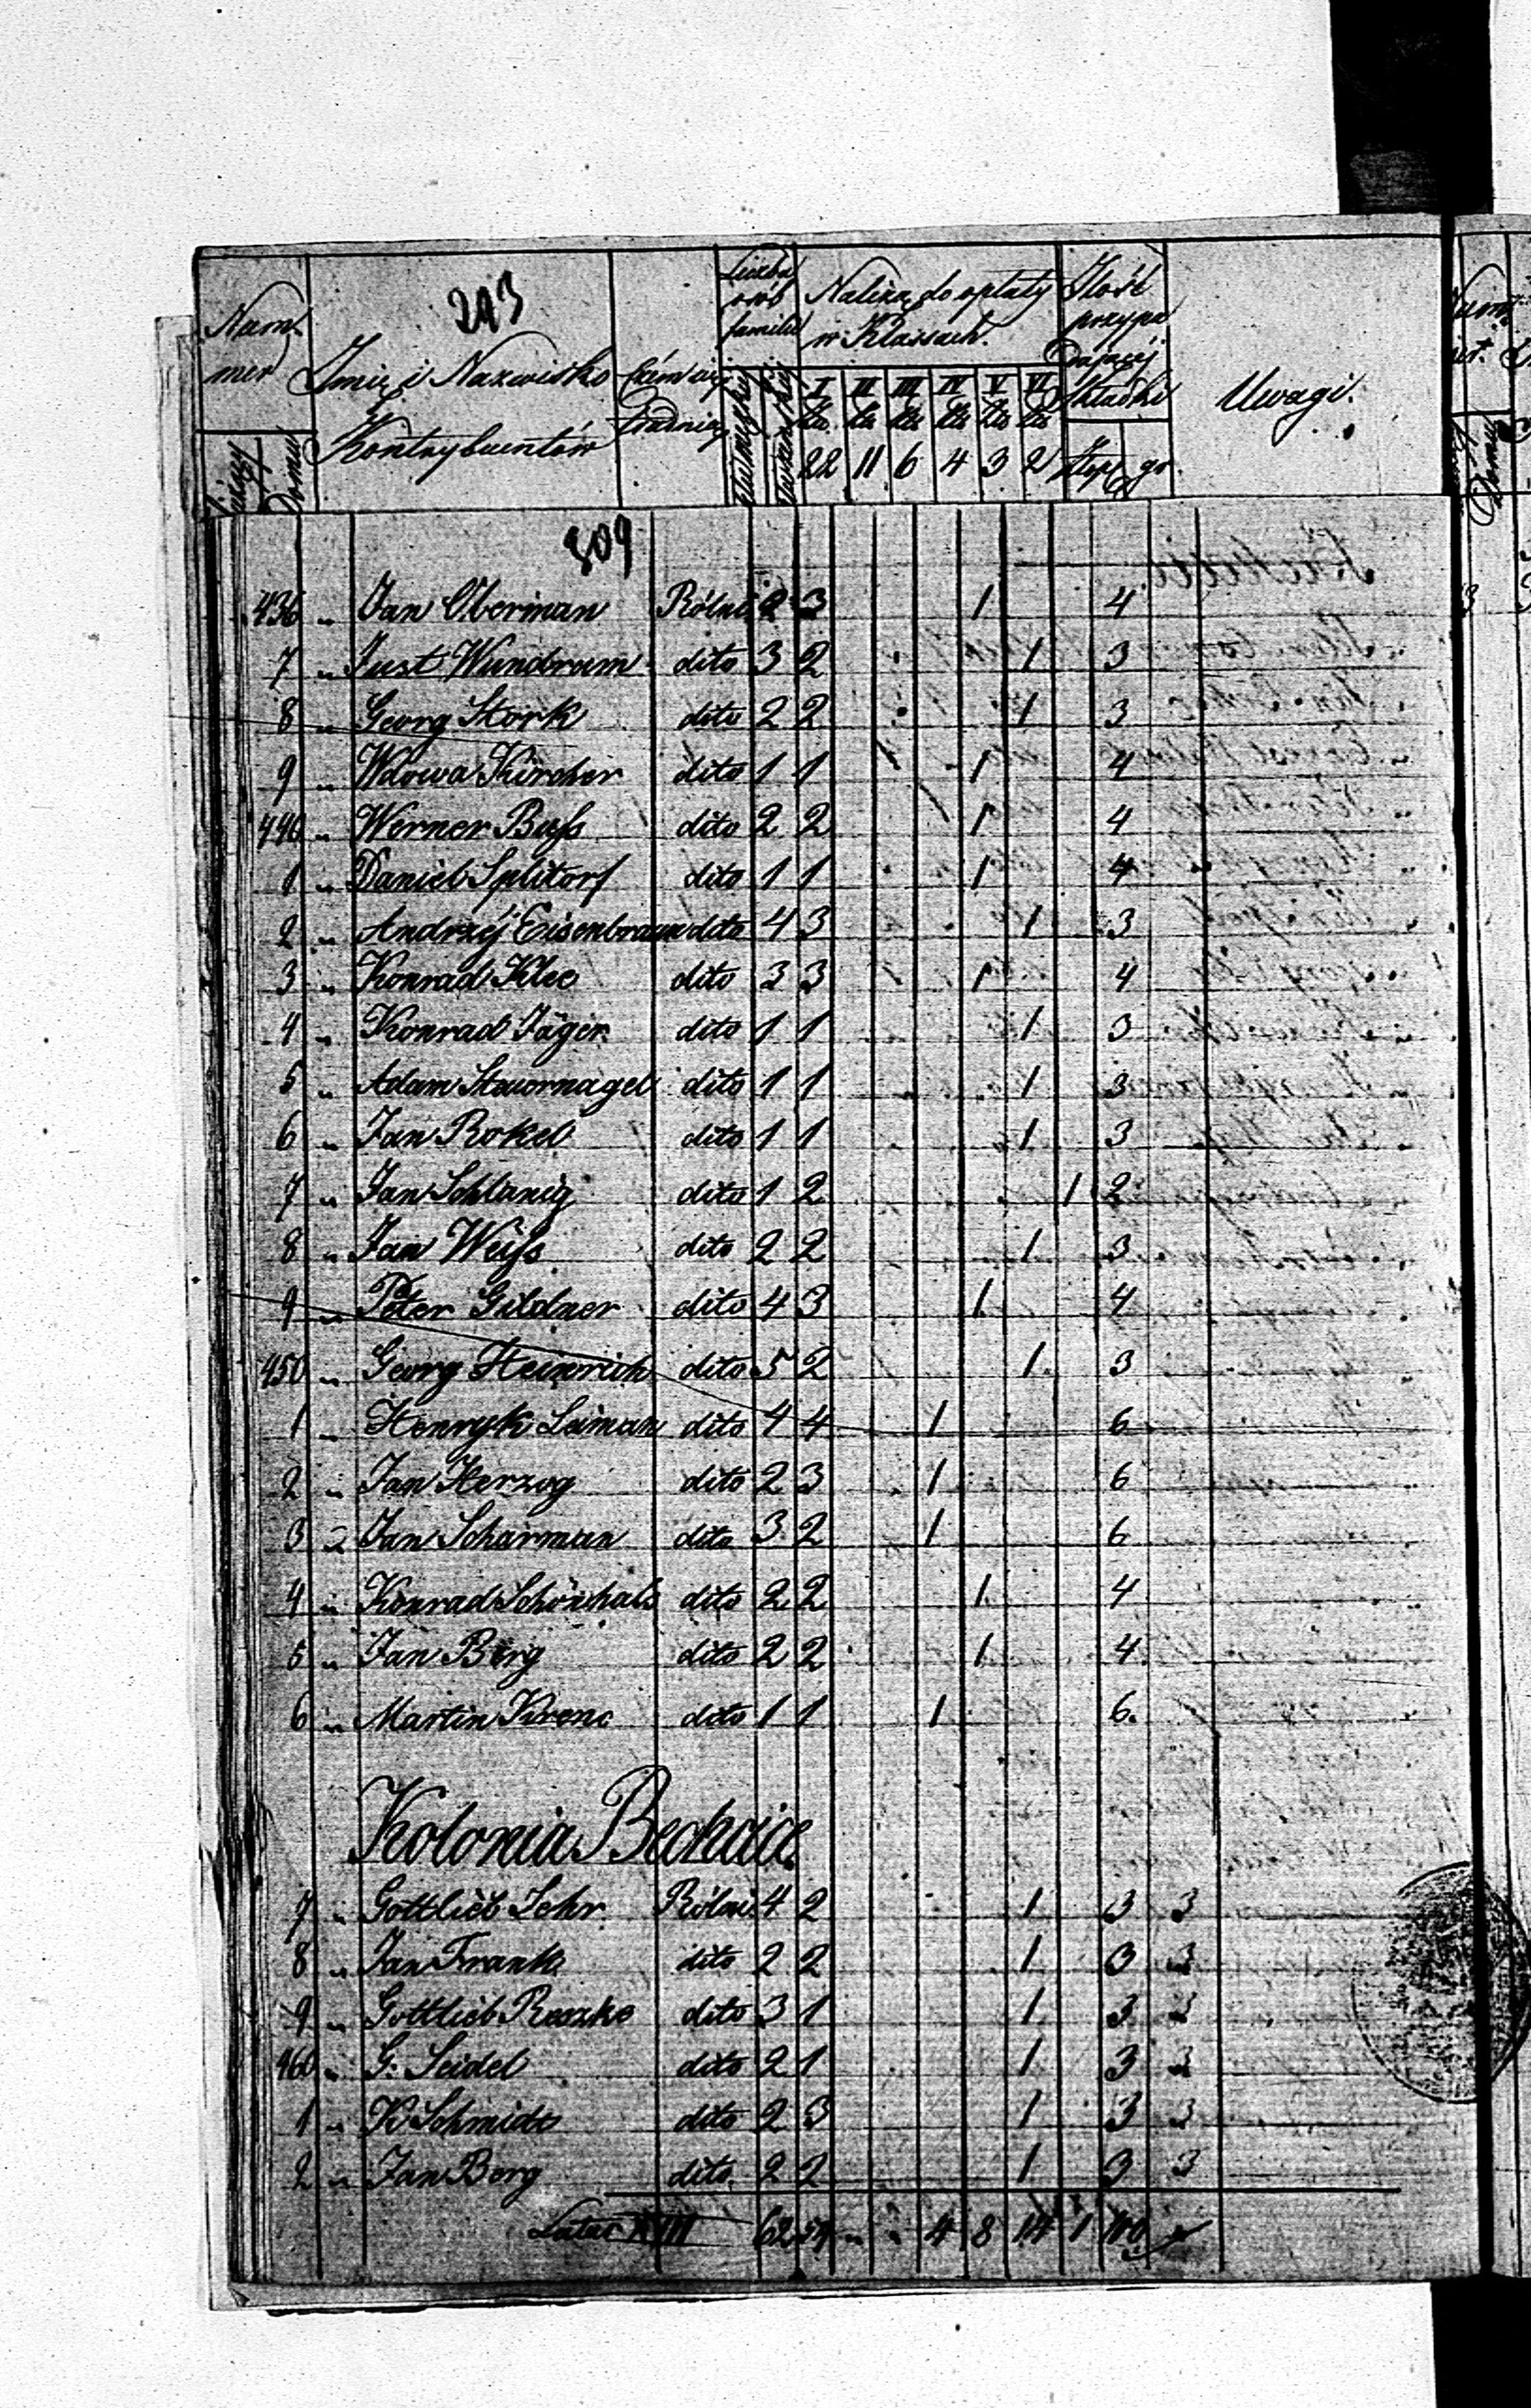 293
Nummer
Imię i Nazwisko Kontrybuentów
Czém się trudnią
Liczba osób familii
Należą do opłaty w Klassach.
Ilość przypadającej składki
Uwagi.
bieżący Domu
I II III IV V VI
22 11 6 4 3 2
złp gr.
309
436 " Jan Oberman Rólni 2 3 1 4
7 " Just Wundram dito 3 2 1 3
8 " Georg Stork dito 2 2 1 3
9 " Wdowa Kircher dito 1 1 1 4
440 " Werner Buſs dito 2 2 1 4
1 " Daniel Splitorf dito 1 1 1 4
2 " Andrzéj Eisenbraun dito 4 3 1 3
3 " Konrad Klee dito 3 3 1 4
4 " Konrad Jäger dito 1 1 1 3
5 " Adam Stauornagel dito 1 1 1 3
6 " Jan Rokel dito 1 1 1 3
7 " Jan Schlanig dito 1 2 1 2
8 " Jan Weiſs dito 2 2 1 3
9 " Peter Gildner dito 4 3 1 4
450 " Georg Heinrich dito 5 2 1 3
1 " Henryk Leiman dito 4 4 1 6
2 " Jan Herzog dito 2 3 1 6
3 " Jan Scharman dito 3 2 1 6
4 " Konrad Schönhals dito 2 2 1 4
5 " Jan Berg dito 2 2 1 4
6 " Martin Krenc dito 1 1 1 6.
Kolonia Bechcice
7 " Gottlieb Lehr Rólni 4 2 1 3 3
8 " Jan Frank dito 2 2 1 3 3
9 " Gottlieb Reszke dito 3 1 1 3 3
460 " G. Seidel dito 2 1 1 3 3
1 " K Schmidt dito 2 3 1 3 3
2 " Jan Berg dito. 2 2 1 3 3
Latus XVII 62 54 " " 4 8 14 1 100